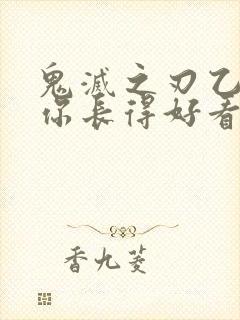 鬼滅之刃乙
你長得好看
香九菱